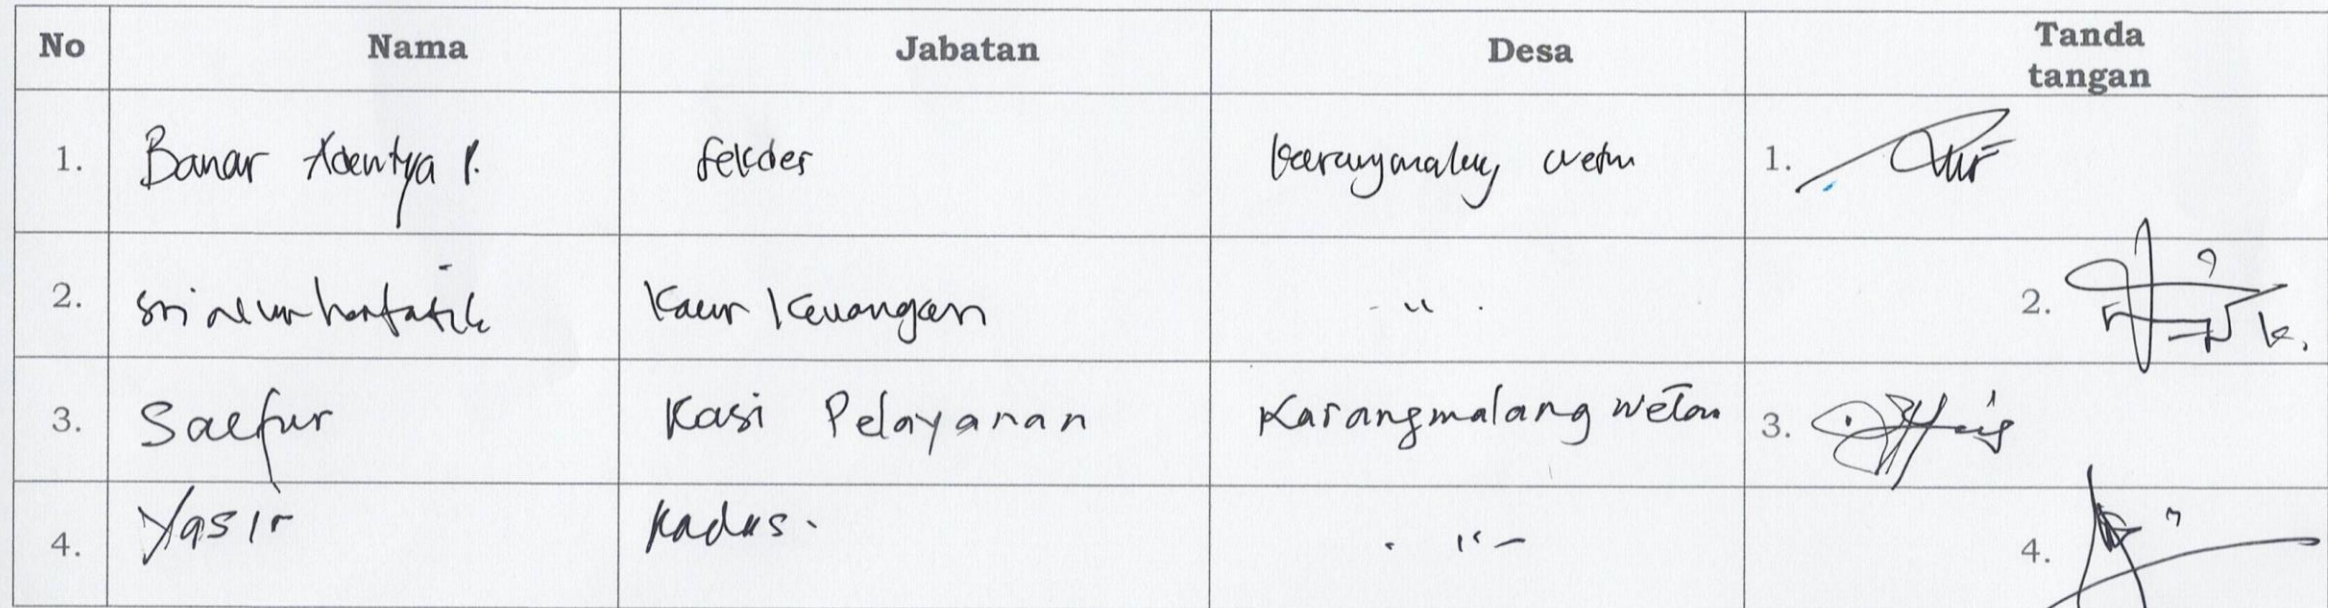 No Nama Jabatan Desa Tanda tangan
1. Banar Adentya P. Sekdes karangmalang wetan 1.
2. Sri Kaur Keuangan - " - 2.
3. Saefur Kasi Pelayanan Karangmalang Wetan 3.
4. Yasir Kadus. - " - 4.